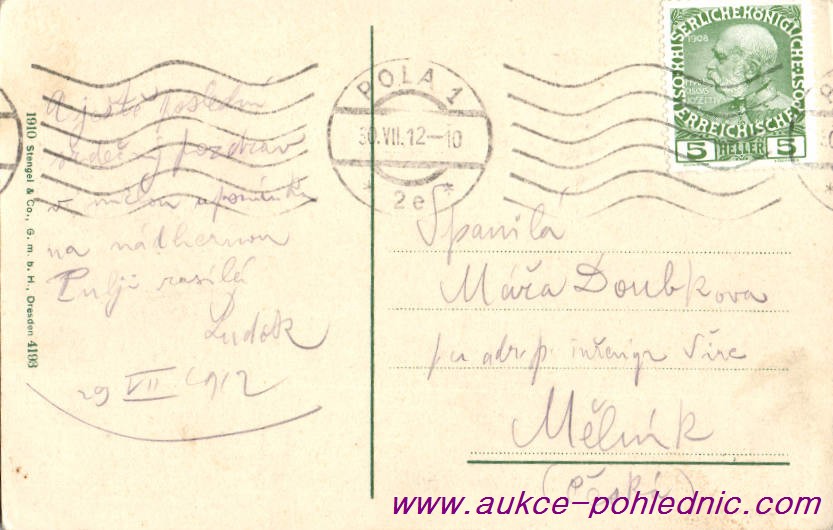 A ještě poslední
srdečný pozdrav
v milou upomínku
na nádhernou
Pulji zasílá
Luděk
29 VII 1912
1910 Stengel & Co., G. m. b. H., Dresden 4193
POLA 1
30.VII.12-10
* 2e *
KAISERLICHEKÖNIGLICHE
ÖSTERREICHISCHE
1908
5 HELLER 5
Spanilá
Mářa Doubkova
adr. p.
Mělník
(Česká)
www.aukce-pohlednic.com